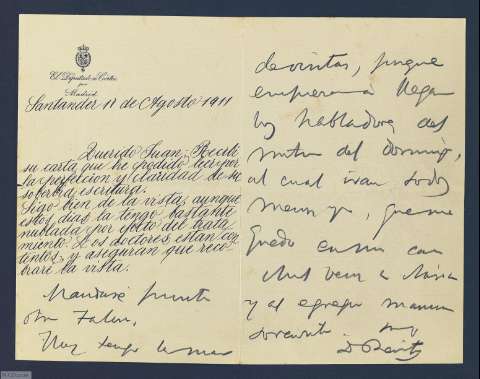 El Diputado a Cortes
por
Madrid
Santander 11 de Agosto 1911
Querido Juan: Recibí
su carta que he podido leer por
la perfección y claridad de su
soberbia escritura.
Sigo bien de la vista, aunque
estos días la tengo bastante
nublada por efto del trata
miento. Los doctores están con
tentos, y aseguran que reco
braré la vista.
Mandaré pronto
otra
Hoy tengo
de visitas, porque
empiezan a llegar
los habladores del
mitin del domingo,
al cual irán todos
menos yo, que me
quedo en mi casa
y al egregio